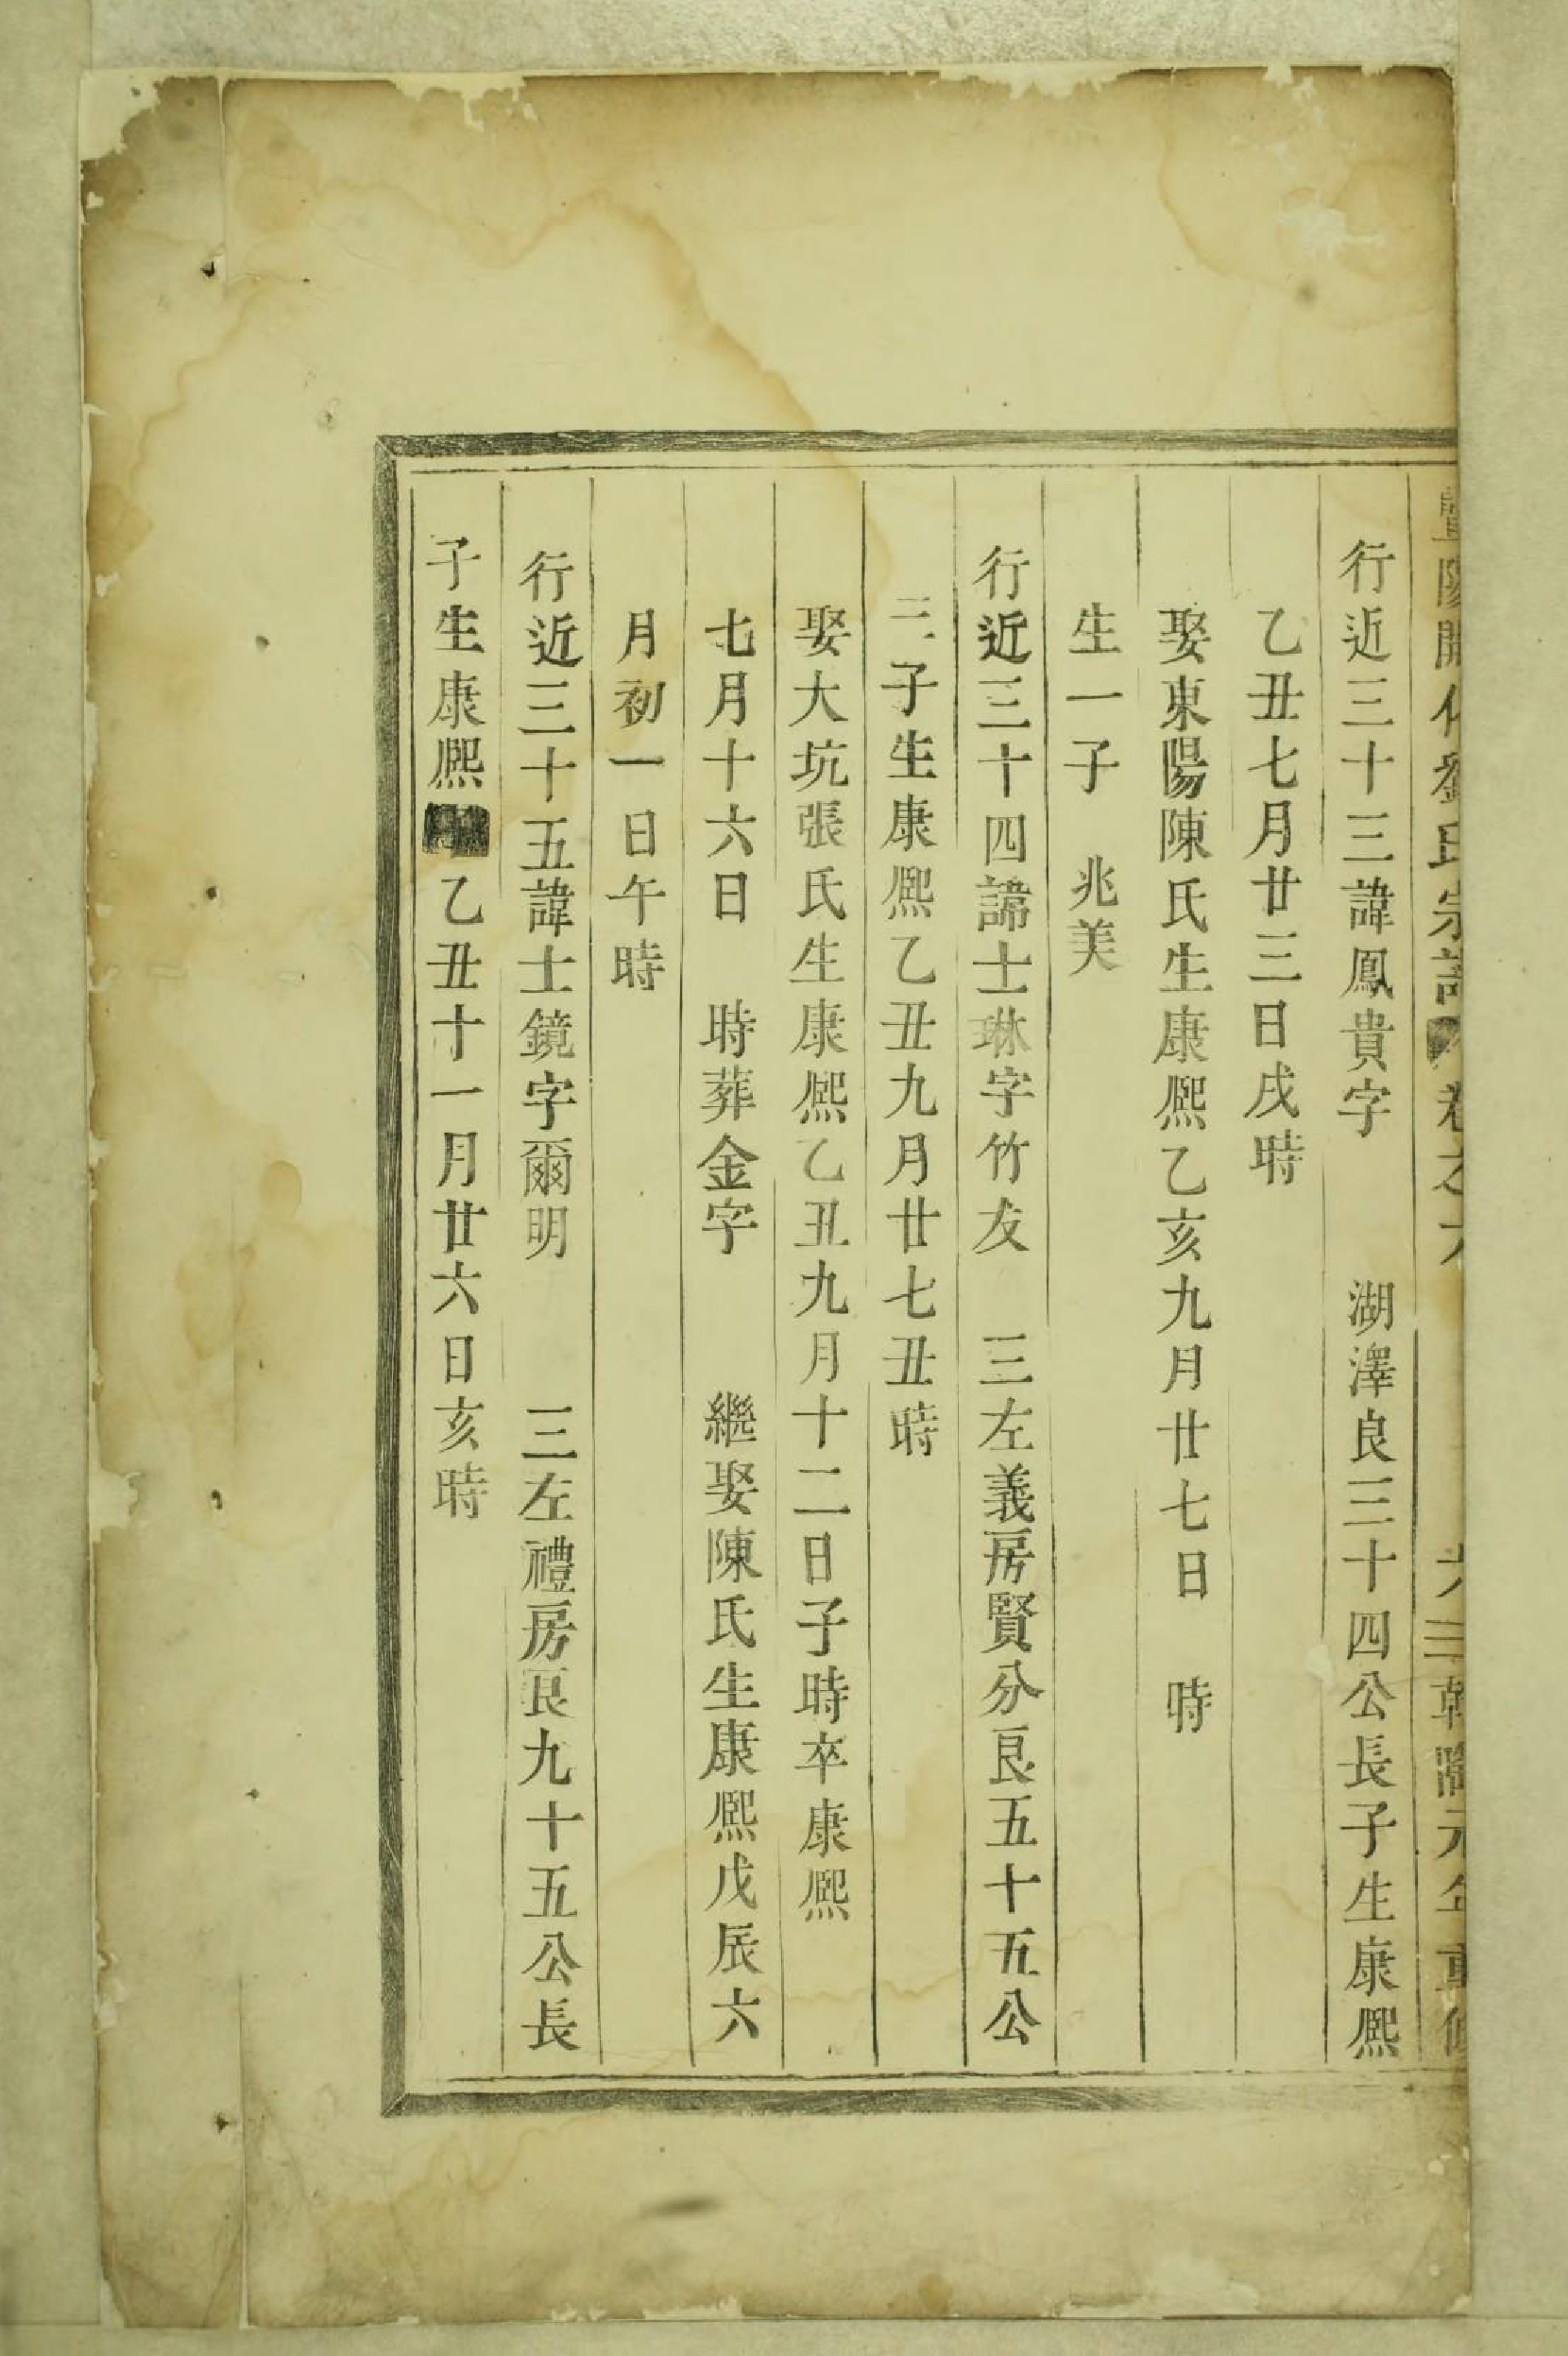 暨陽開化劉氏宗譜 卷之六 六三 乾隆元年重修
行近三十三諱鳳貴字 湖澤良三十四公長子生康熈
乙丑七月廿三日戌時
娶東陽陳氏生康熈乙亥九月廿七日 時
生一子 兆美
行近三十四諱士琳字竹友 三左義房賢分良五十五公
二子生康熈乙丑九月廿七丑時
娶大坑張氏生康熈乙丑九月十二日子時卒康熈
七月十六日 時葬金字 繼娶陳氏生康熈戊辰六
月初一日午時
行近三十五諱士鏡字爾明 三左禮房良九十五公長
子生康熈乙丑十一月廿六日亥時